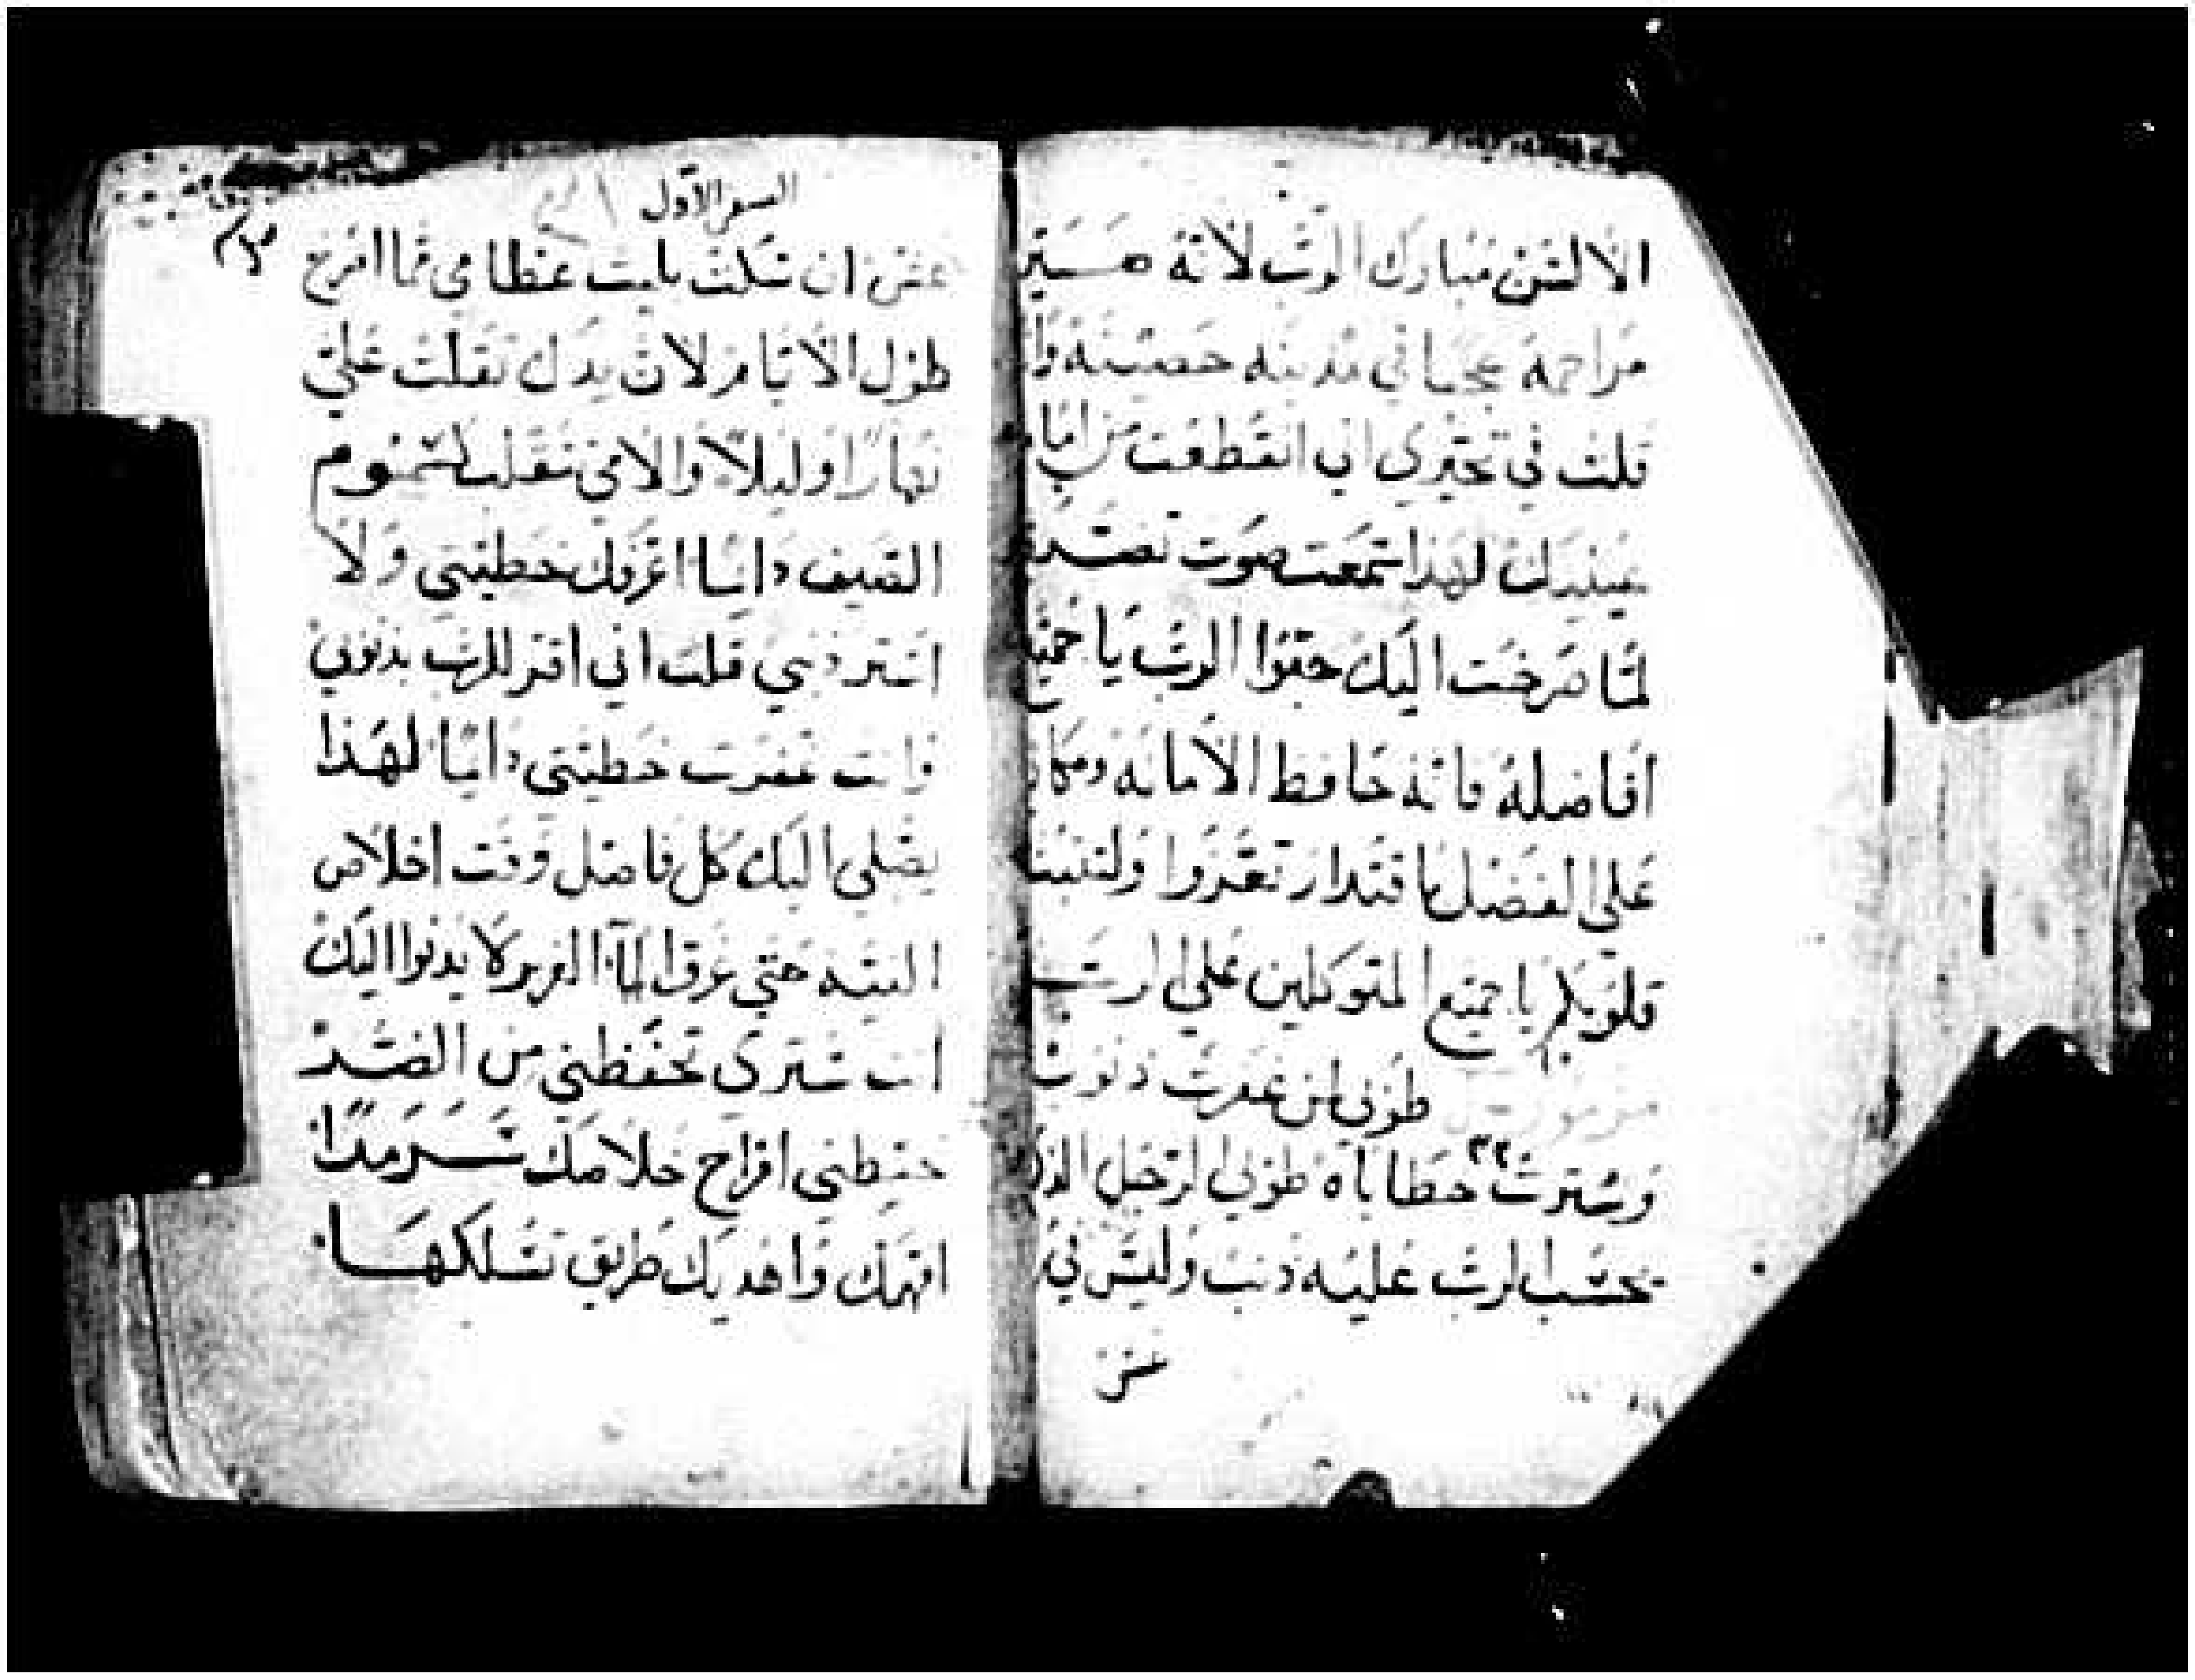 الالسُن مُبارك الرب لانهُ صَيّر
مراحمهَ عجبًا في مَدينه حصَينَه وانا
قلت في تحيّري اني انقطعت من امام
عينيك لهَذا سَمعَت صوَت تضّرعي
لمّا صَرخَت اليك حبّوا الرب يَا جميع
افاضلهُ فانهُ حَافظ الامانَه ومكافي
عَلى الفضل باقتدار تعَززوا ولتثبت
قلوبكم يا جميع المتوكلين عَلي الرب
مزمور طوبى لمن غفرت ذنوبه
٣٢
وَسُترت خطاياه طوبى لرجل الذي
يحسَب الرب عَليه ذنب وَليس في
غش
السفر الاول
غش ان سَكت بليت عظامي ممّا اصرخ
طول الايّام لان يدك ثقلت عَليّ
نهَارًا وليلاً والامي تقلب كسموم
القيض دايمًا اعرفك خطيتي وَلا
استر ذنبي قلت اني اقر للرب بذنوبي
وانت غفرت خطيتي دايمًا لهَذا
يصلي اليك كل فاضل وقت اخلاص
النيّه حتي غرق المآ الغزير لا يدنوا اليك
انت ستري تحفظني من الضّد
حفظني افراح خلاصَك سَرمدًا
افهمك وَاهديك طريق تسلكهَا